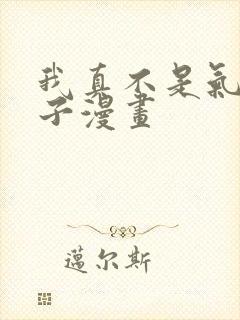 我真不是氣
子漫畫
邁尔斯